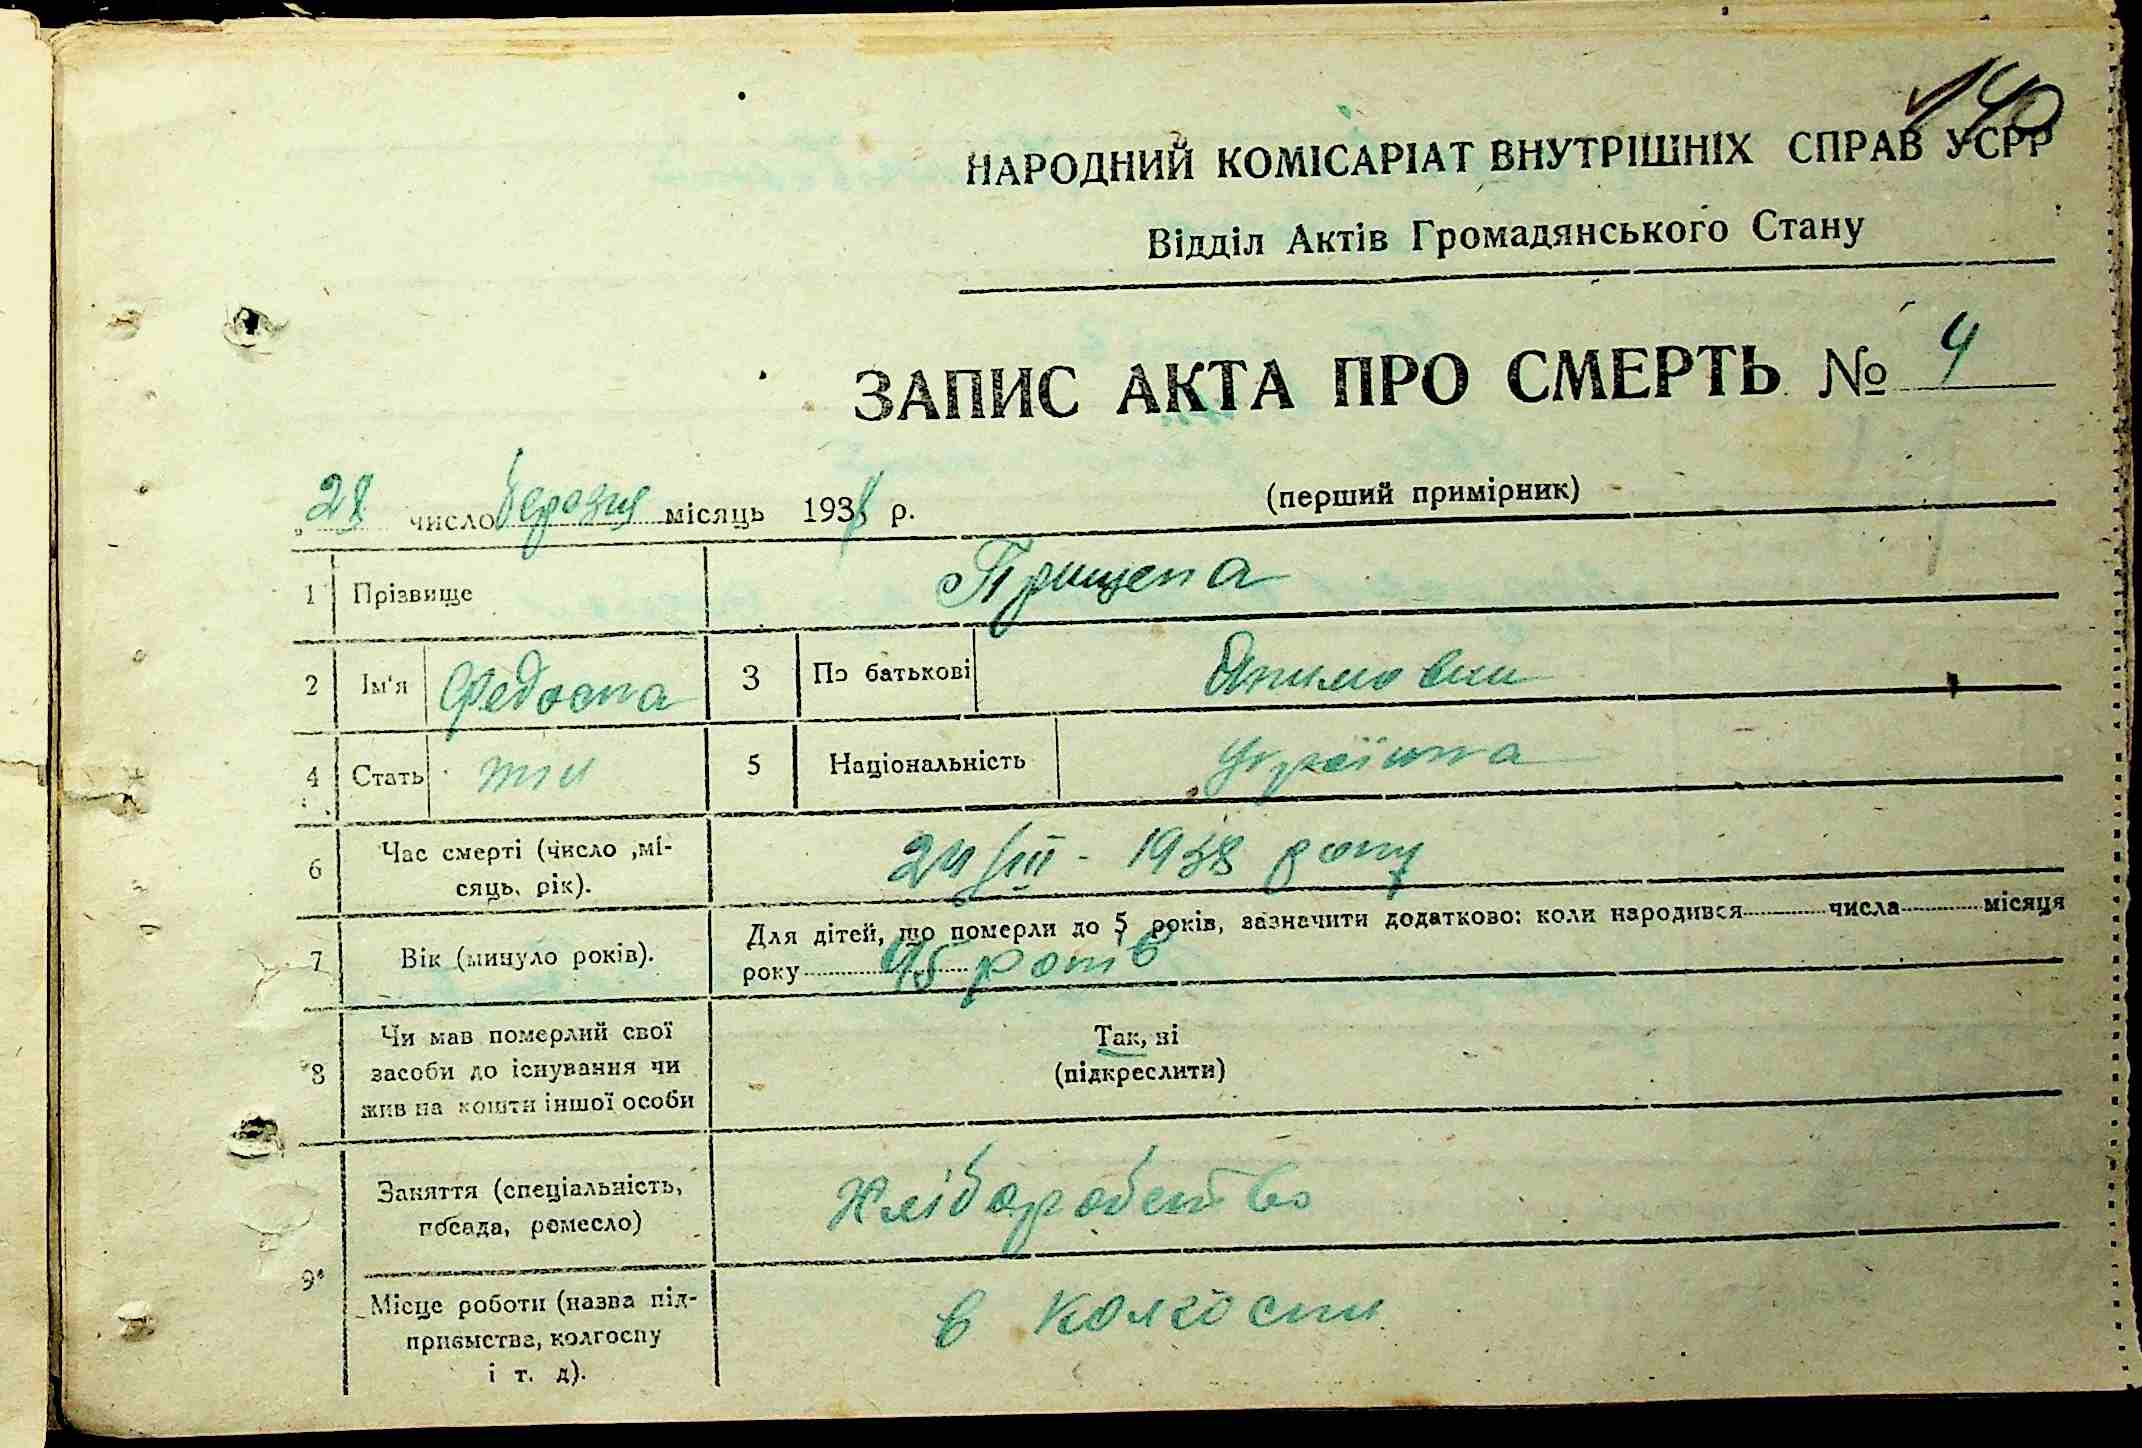 140
НАРОДНИЙ КОМІСАРІАТ ВНУТРІШНІХ СПРАВ УСРР
Відділ Актів Громадянського Стану
ЗАПИС АКТА ПРО СМЕРТЬ № 4
(перший примірник)
„28 число березня місяць 1938 р.
1 Прізвище Прищепа
2 Ім'я Федосія 3 По батькові
4 Стать жін 5 Національність Українка
6 Час смерті (число ,мі-
сяць, рік). 24/III - 1938 року
7 Вік (минуло років). Для дітей, що померли до 5 років, зазначити додатково: коли народився числа місяця
року 45 років
8 Чи мав померлий свої
засоби до існування чи
жив на кошти іншої особи
Так, ні
(підкреслити)
9 Заняття (спеціальність,
посада, ремесло) Хліборобство
Місце роботи (назва під-
приємства, колгоспу
і т. д). в колгоспі